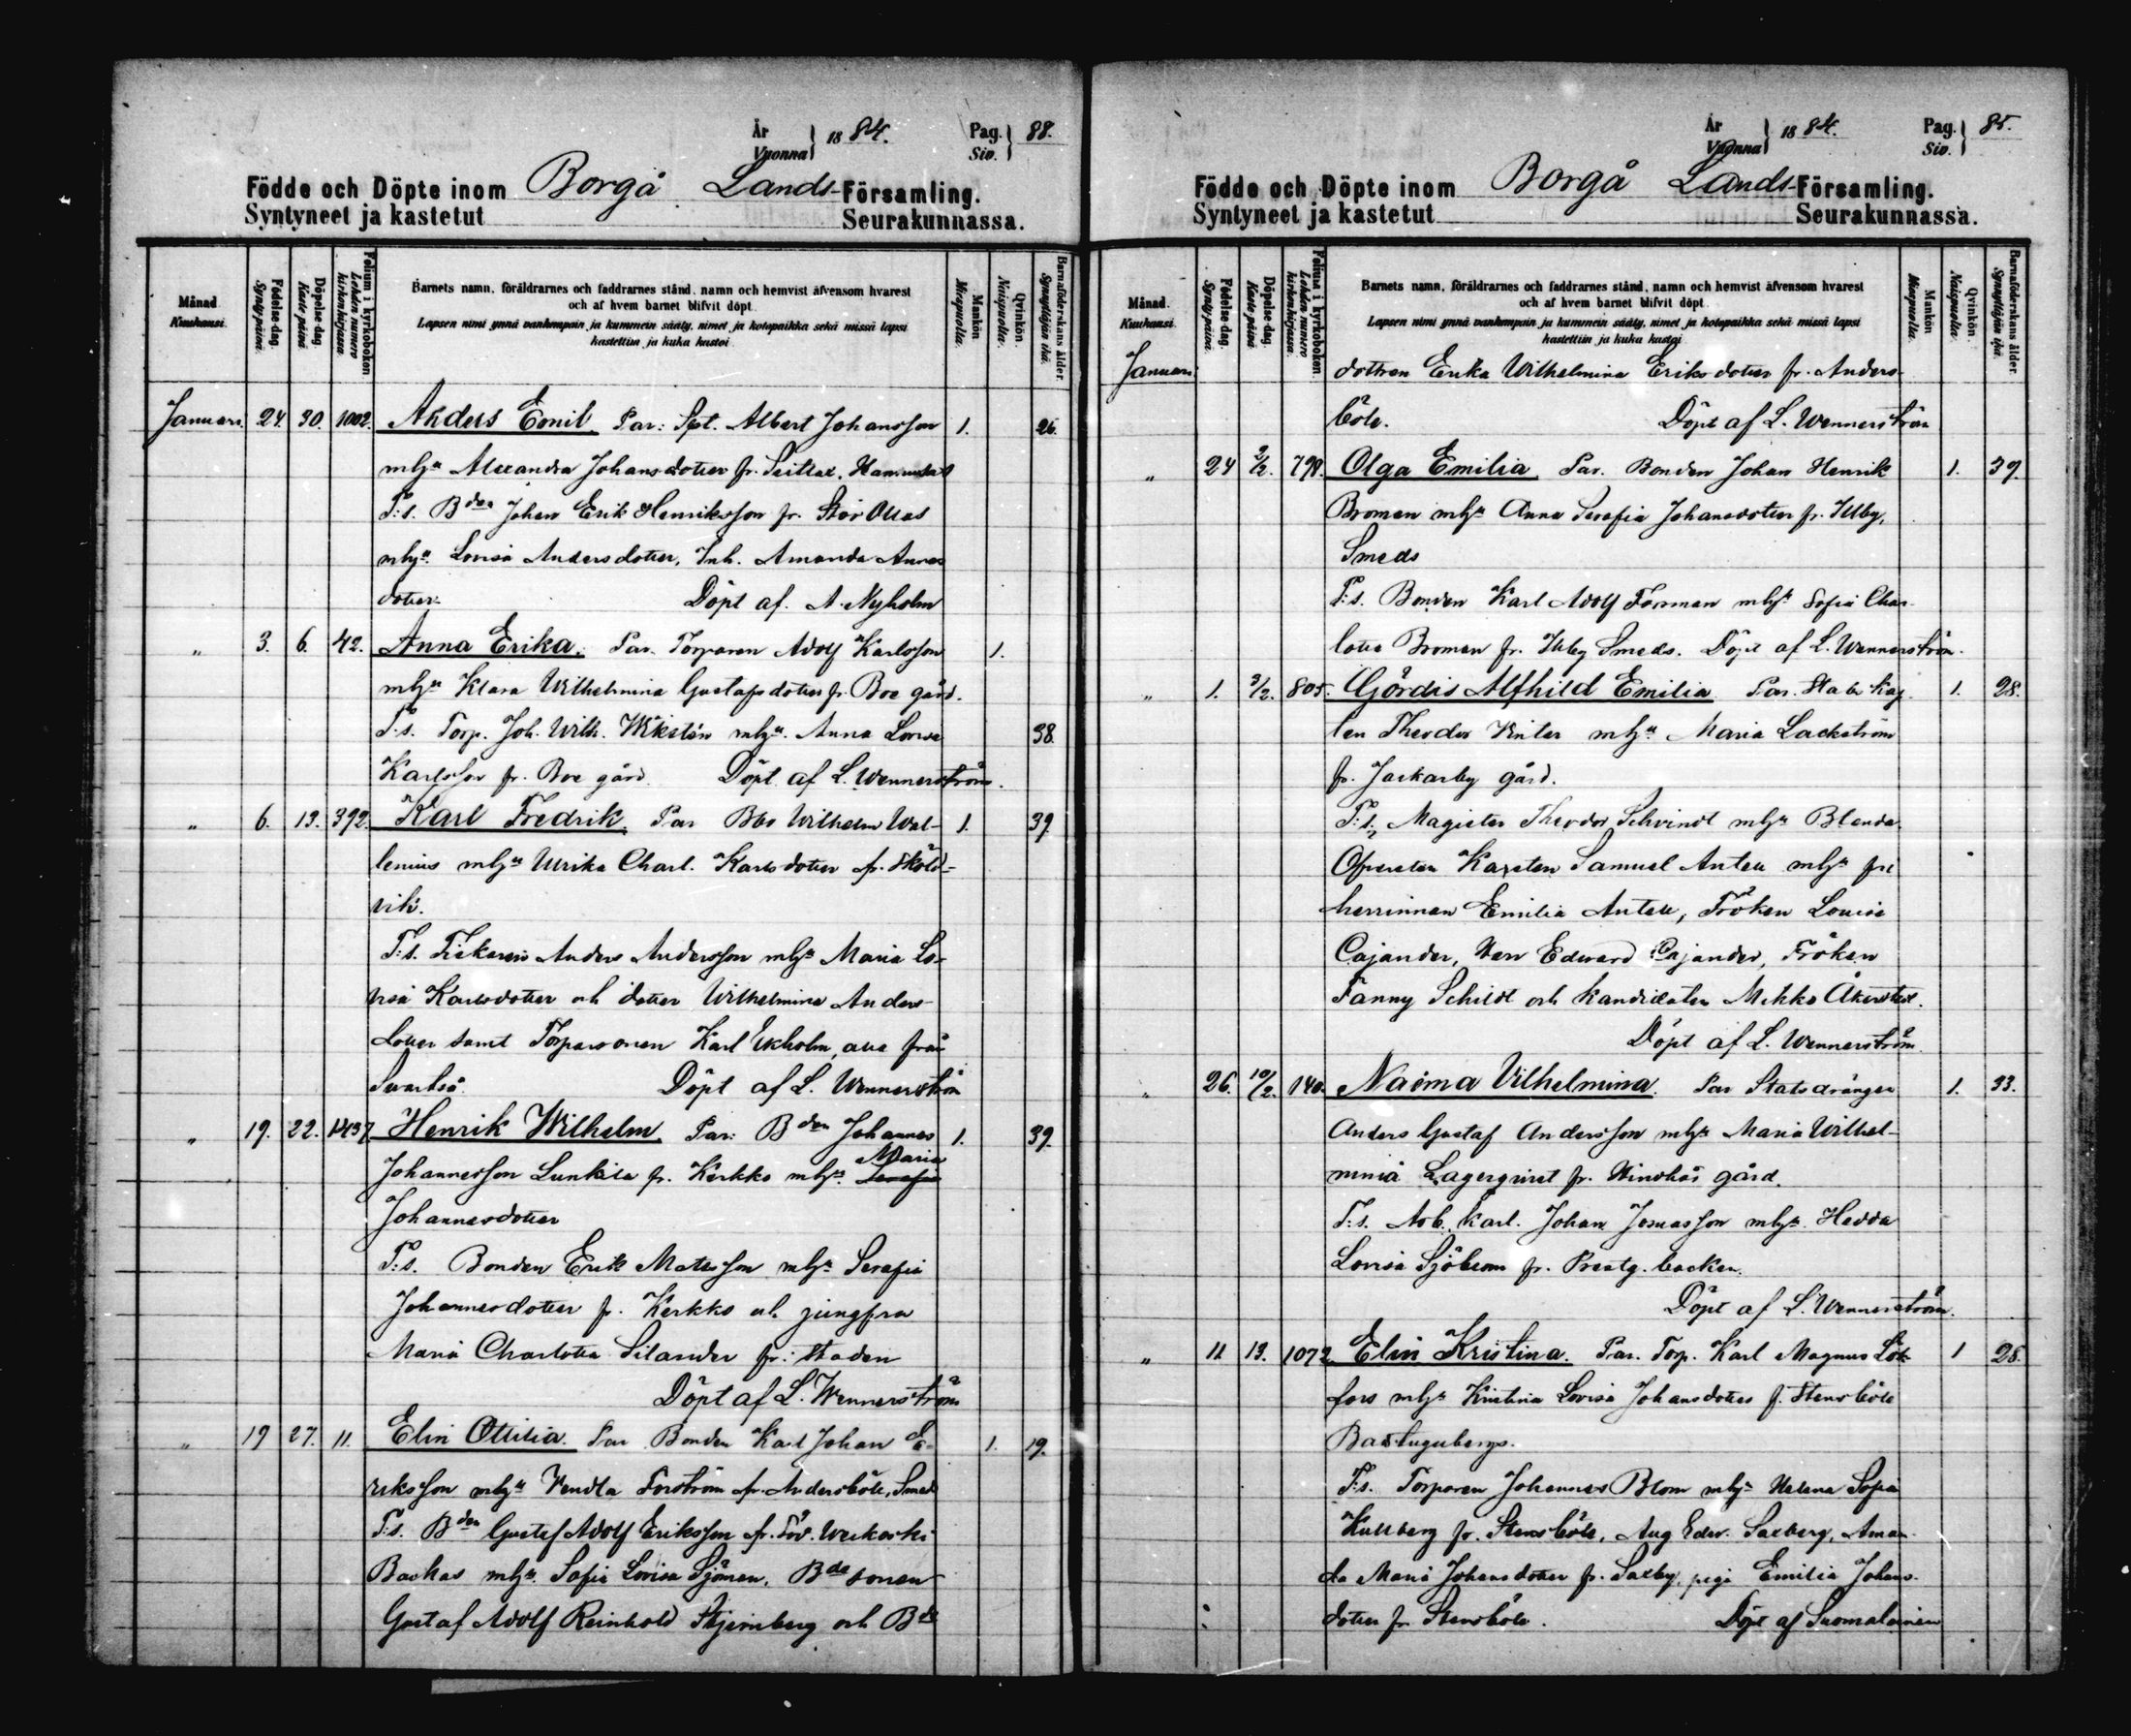 År
Vuonna
1884.
Pag.
Siv.
88.
Födde och Döpte inom Borgå Lands-Församling.
Syntyneet ja kastetut Seurakunnassa.
Månad. Kuukausi.
Födelse-dag. Synty-päivä.
Döpelse-dag. Kaste-päivä.
Folium i kyrkoboken Lehden numero kirkonkirjassa.
Barnets namn, föräldrarnes och faddrarnes stånd, namn och hemvist äfvensom hvarest
och af hvem barnet blifvit döpt.
Lapsen nimi ynnä vanhempain ja kummein sääty, nimet ja kotopaikka sekä missä lapsi
kastettiin ja kuka kastoi
Mankön Miespuolia.
Qvinkön. Naispuolia.
Barnaföderskans ålder. Synnyttäjän ikä.
Januari. 24. 30. 1002. Anders Emil Par: Spt. Albert Johansson 1. 26.
mhs Alexandra Johansdotter fr. Seitlax,
F:s. Bden Johan Erik Henriksson fr.
mhs. Lovisa Andersdotter, Inh. Amanda Anders
dotter. Döpt af. A. Nyholm
„ 3. 6. 42. Anna Erika. Par. Torparen Adolf Karlsson 1.
mhs Klara Wilhelmina Gustafsdotter fr. Boe gård.
F:s. Torp. Joh. Wilh. Wiksten mhs. Anna Lovisa 38.
Karlsson fr. Boe gård. Döpt af L. Wennerström.
„ 6. 13. 392. Karl Fredrik. Par Bbs Wilhelm Wal- 1. 39.
lenius mhs Ulrika Charl. Karlsdotter fr. Sköld-
vik.
F:s. Fiskaren Anders Andersson mhs Maria Lo-
visa Karlsdotter och dotter Wilhelmina Anders-
dotter samt Torparsonen Karl Ekholm, alla från
Svartså. Döpt af L. Wennerström
„ 19. 22. 1437 Henrik Wilhelm. Par: Bden Johannes 1. 39.
Maria
Johannesson Lunkila fr. Kerkko mhs. Serafia
Johannesdotter
F:s. Bonden Erik Matsson mhs Serafia
Johannesdotter fr. Kerkko och jungfru
Maria Charlotta Silander fr: staden
Döpt af L. Wennerström
„ 19 27. 11. Elin Ottilia. Par Bonden Karl Johan E- 1. 19.
riksson mhs Vendla Forström fr. Andersböle, Smeds
F:s. Bden Gustaf Adolf Eriksson fr.
Backas mhs. Sofia Lovisa Sjöman. Bdesonen
Gustaf Adolf Reinhold Stjernberg och Bde
År
Vuonna
1884.
Pag.
Siv.
85.
Födde och Döpte inom Borgå Lands-Församling.
Syntyneet ja kastetut Seurakunnassa.
Månad. Kuukausi.
Födelse-dag. Synty-päivä.
Döpelse-dag. Kaste-päivä.
Folium i kyrkoboken Lehden numero kirkonkirjassa.
Barnets namn, föräldrarnes och faddrarnes stånd, namn och hemvist äfvensom hvarest
och af hvem barnet blifvit döpt.
Lapsen nimi ynnä vanhempain ja kummein sääty, nimet ja kotopaikka sekä missä lapsi
kastettiin ja kuka kastoi
Mankön Miespuolia.
Qvinkön. Naispuolia.
Barnaföderskans ålder. Synnyttäjän ikä.
Januari. dottren Erika Wilhelmina Eriksdotter fr. Anders-
böle. Döpt af L. Wennerström
„ 24 2/2. 798. Olga Emilia Par. Bonden Johan Henrik 1. 39.
Broman mhs Anna Serafia Johansdotter fr. Illby,
Smeds
F:s. Bonden Karl Adolf Forsman mhs Sofia Char-
lotta Broman fr. Illby Smeds. Döpt af L. Wennerström.
„ 1. 3/2. 805. Gördis Alfhild Emilia Par. Stabs kap 1. 28.
ten Theodor Winter mhs Maria Lackström
fr. Jackarby gård.
F:s, Magister Theodor Schvindt mhs Blenda.
Karsten Samuel Antell mhs fri
herrinnan Emilia Antell, Fröken Louise
Cajander, Herr Edward Cajander, Fröken
Fanny Schildt och kandidaten Mikko
Döpt af L. Wennerström.
„ 26. 10/2. 140. Naima Vilhelmina. Par Statsdrängen 1. 33.
Anders Gustaf Andersson mhs Maria Wilhel-
mina Lagerqvist fr. gård.
F:s. Arb. karl. Johan Jonasson mhs. Hedda
Lovisa Sjöblom fr. Prestg. backen.
Döpt af L. Wennerström.
„ 11 13. 1072. Elin Kristina. Par. Torp. Karl Magnus Löf- 1 28.
fors mhs Kristina Lovisa Johansdotter fr. Stensböle
Badstugubergs.
F:s. Torparen Johannes Blom mhs Helena Sofia
Kullberg fr. Stensböle, Aug Edv. Saxberg, Aman-
da Maria Johansdotter fr. Saxby, piga Emilia Johans-
dotter fr. Stensböle. Döpt af Suomalainen